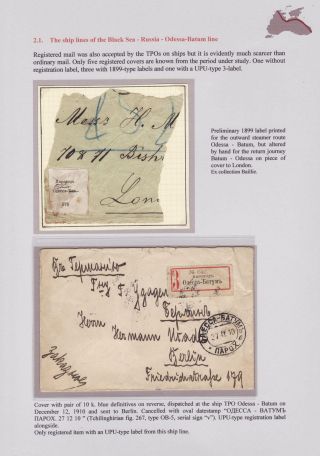 2.1. The ship lines of the Black Sea - Russia - Odessa-Batum line
Registered mail was also accepted by the TPOs on ships but it is evidently much scarcer than
ordinary mail. Only five registered covers are known from the period under study. One without
registration label, three with 1899-type labels and one with a UPU-type 3-label.
Messrs H. M
70 & 71 Bish
Lon
Preliminary 1899 label printed
for the outward steamer route
Odessa - Batum, but altered
by hand for the return journey
Batum - Odessa on piece of
cover to London.
Ex collection Baillie.
Въ Германію
Одесса-Батумъ
Берлинъ
Herrn Hermann
Berlin
Friedrichstrasse 179
Заказное
ОДЕССА-ВАТУМЪ
27 12 10
ПАРОХ.
Cover with pair of 10 k. blue definitives on reverse, dispatched at the ship TPO Odessa - Batum on
December 12, 1910 and sent to Berlin. Cancelled with oval datestamp "ОДЕССА - ВАТУМЪ
ПАРОХ. 27 12 10 " (Tchilinghirian fig. 267, type OB-5, serial sign "v"). UPU-type registration label
alongside.
Only registered item with an UPU-type label from this ship line.